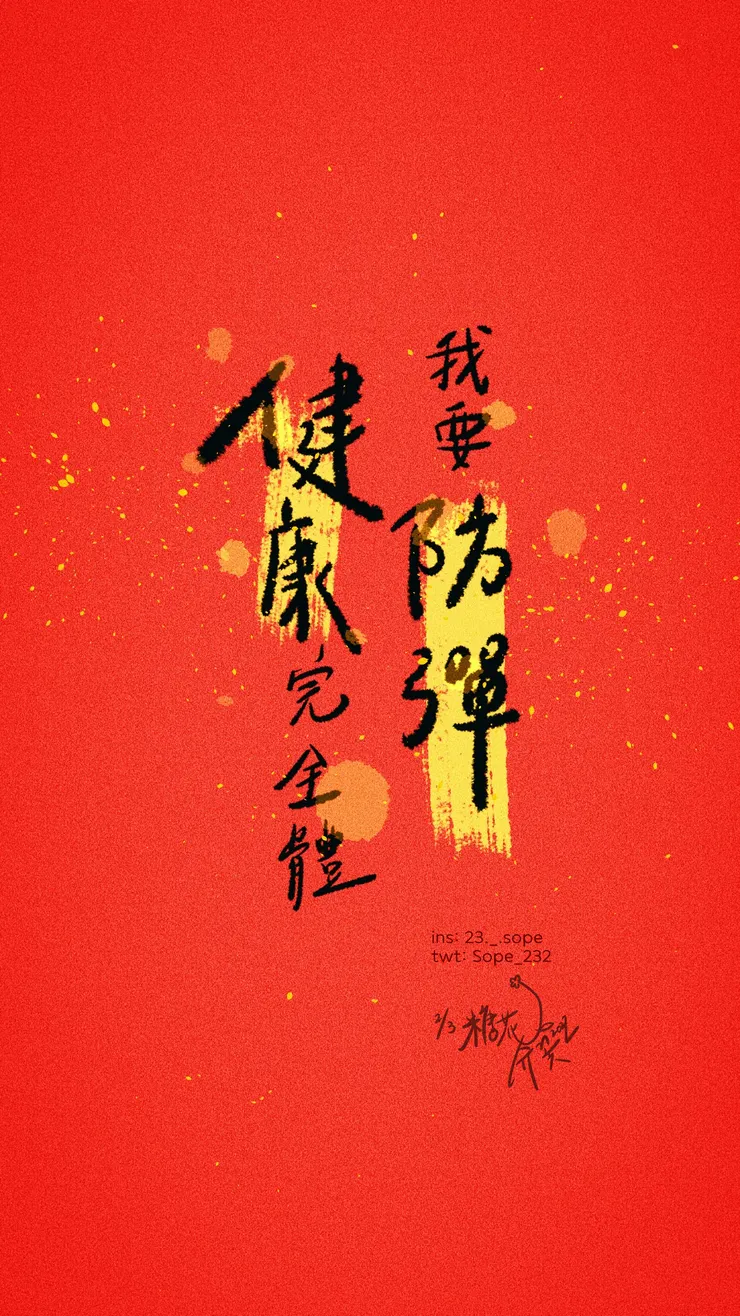 我要防彈
健康完全體
ins: 23._.sope
twt: Sope_232
2/3 糖花